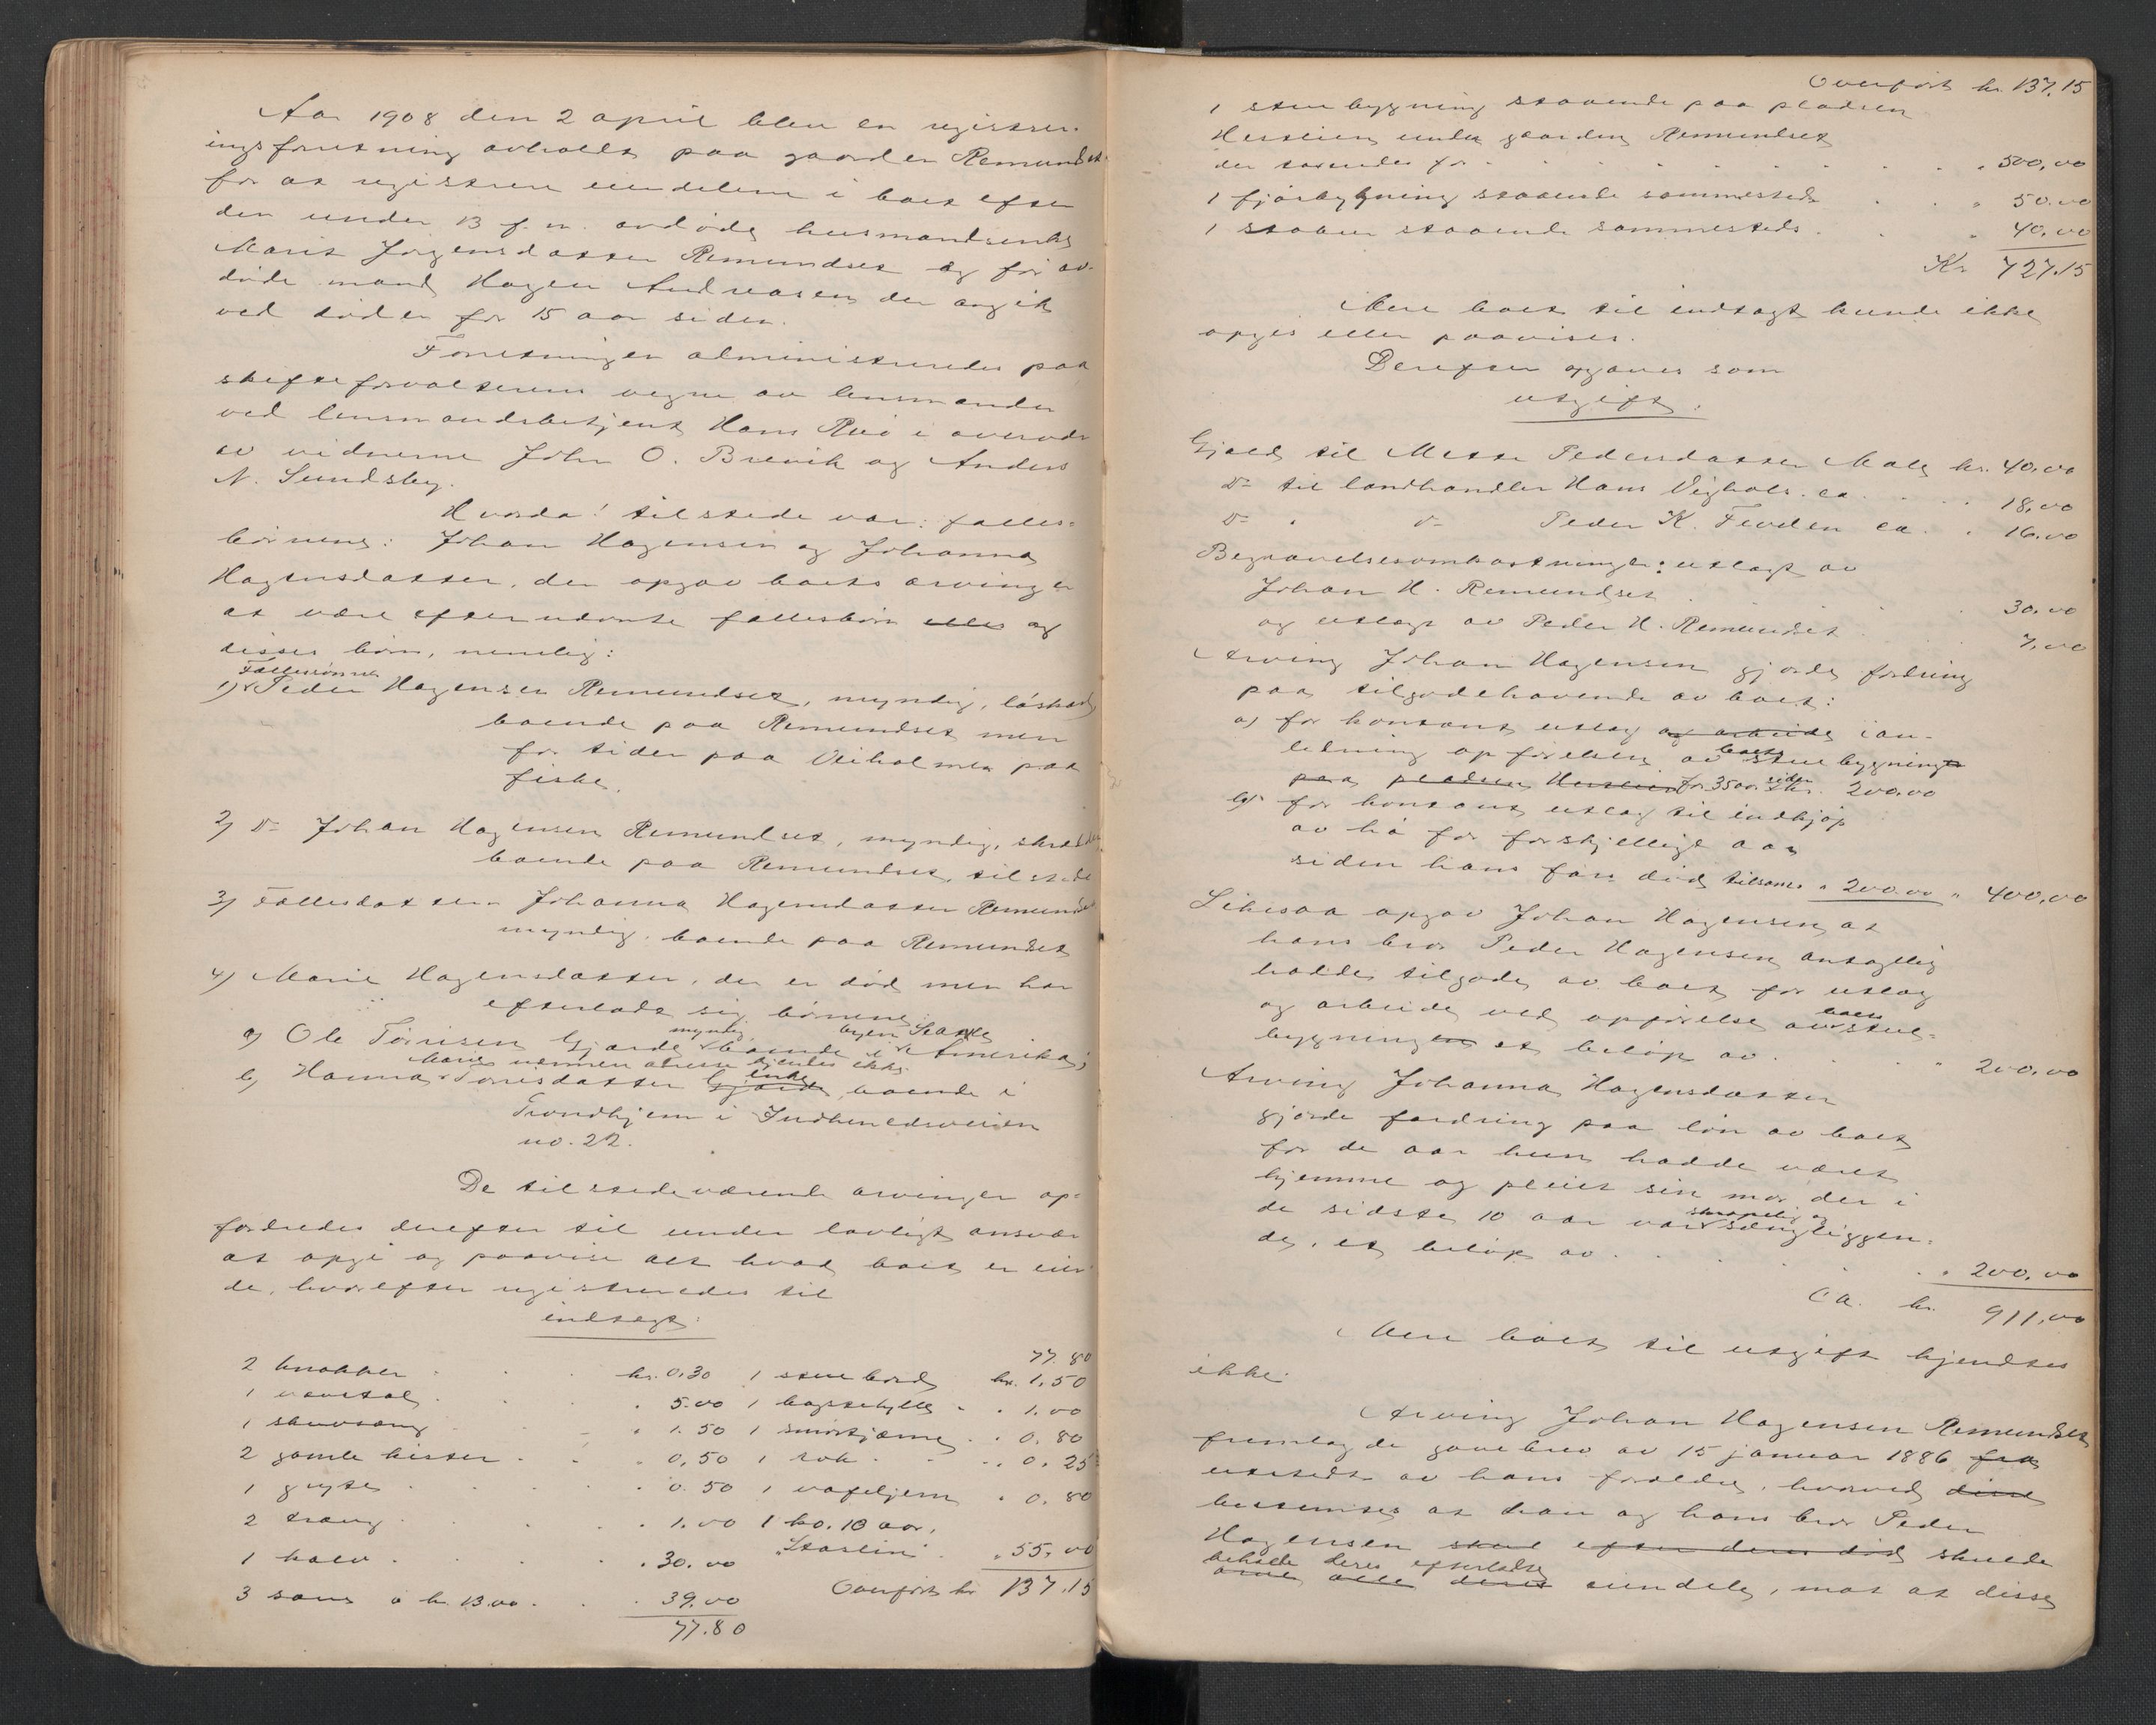 Aar 1908 den 2 april blev en registrer-
ingsforretning avholdt paa gaarden Remundset
for at registrere eiendelene i boet efter
den under 13 f. m. avdøde husmandsenke
Marit Jørgensdatter Remundset og før av-
døde mand Hagen Andreasen der avgik
ved døden for 15 aar siden.
Forretningen administreredes paa
skifteforvalterens vegne av lensmanden
ved lensmandsbetjent Hans Rui i overvær
av vidnerne John O. Brevik og Anders
N. Sundsby.
Hvorda! tilstede var: fælles-
børnene: Johan Hagensen og Johanna
Hagensdatter, der opgav boets arvinger
at være efternævnte fællesbørn eller og
disses børn, nemlig:
Fællessønnen
1) Peder Hagensen Remundset, myndig, løskarl
boende paa Remundset men
for tiden paa Veiholmen paa
fiske.
2) Do Johan Hagensen Remundset, myndig, skrædder,
boende paa Remundset, tilstede
3) Fællesdatteren Johanna Hagensdatter Remundset
myndig, boende paa Remundset
4) Marie Hagensdatter, der er død men har
efterladt sig børnene:
myndig byen Seattle
a) Ole Tørrisen Gjærde boende i Amerika;
nærmere adresse kjendes ikke.
enke
b) Hanna Marie Tørrisdatter Gjærde, boende i
Trondhjem i Indherredsveien
no. 22.
De tilstedeværende arvinger op-
fordredes derefter til under lovligt ansvar
at opgi og paavise alt hvad boet er eien-
de, hvorefter registreredes til
indtægt:
77.80
2 knakker . . kr. 0.30 1 stuebord kr. 1.50
1 vævstol . . " 5.00 1 bøgstehylle " " 1.00
1 skuvsæng . . " 1.50 1 smørkjærne " " 0.80
2 gamle kister . . " 0.50 1 rok . . " 0.25
1 gryte . . " 0.50 1 vafeljern " 0.80
2 traug . . " 1.00 1 ko. 10 aar,
1 kalv . . " 30.00 "Starlin" . " 55.00
3 sauer à kr. 13.00 . . " 39.00 Overført kr 137.15
77.80
Overført kr. 137.15
1 stuebygning staaende paa pladsen
Hestleien under gaarden Remundset
der taxeredes for . . . " 500,00
1 fjøsbygning staaende sammesteds . . " 50.00
1 stabur staaende sammesteds . . " 40.00
Kr 727.15
Mere boet til indtægt kunde ikke
opgis eller paavises.
Derefter opgaves som
utgift.
Gjæld til Mette Pedersdatter Male kr. 40,00
Do til landhandler Hans Vighals. ca . . 18,00
Do " Do Peder K. Fevolden ca. " 16.00
Begravelsesomkostninger: utlagt av
Johan H. Remundset . . 30,00
og utlagt av Peder H. Remundset . . 7,00
Arving Johan Hagensen gjorde fordring
paa tilgodehavende av boet:
a) for kontant utlæg og arbeide i an-
ledning opførelsen av boets stuebygning
paa pladsen Hestleien for 35 aar siden kr. 200.00
b) for kontant utlæg til indkjøp
av hø for forskjellige aar
siden hans fars død tilsammen " 200.00 " 400,00
Likesaa opgav Johan Hagensen at
hans bror Peder Hagensen antagelig
hadde tilgode av boet for utlæg
og arbeide ved opførelse av boets stue-
bygningen et beløp av . . " 200.00
Arving Johanna Hagensdatter
gjorde fordring paa løn av boet
for de aar hun hadde været
hjemme og pleiet sin mor, der i
de sidste 10 aar var skrøpelig og sengliggen-
de, et beløp av . . " 200.00
Ca. kr. 911,00
Mere boet til utgift kjendtes
ikke.
Arving Johan Hagensen Remundset
fremlagde gavebrev av 15 januar 1886 fra
utstedt av hans forældre, hvorved disse
bestemtes at han og hans bror Peder
Hagensen skal efter deres død skulde
beholde deres efterladte
arve alle deres eiendele, mot at disse